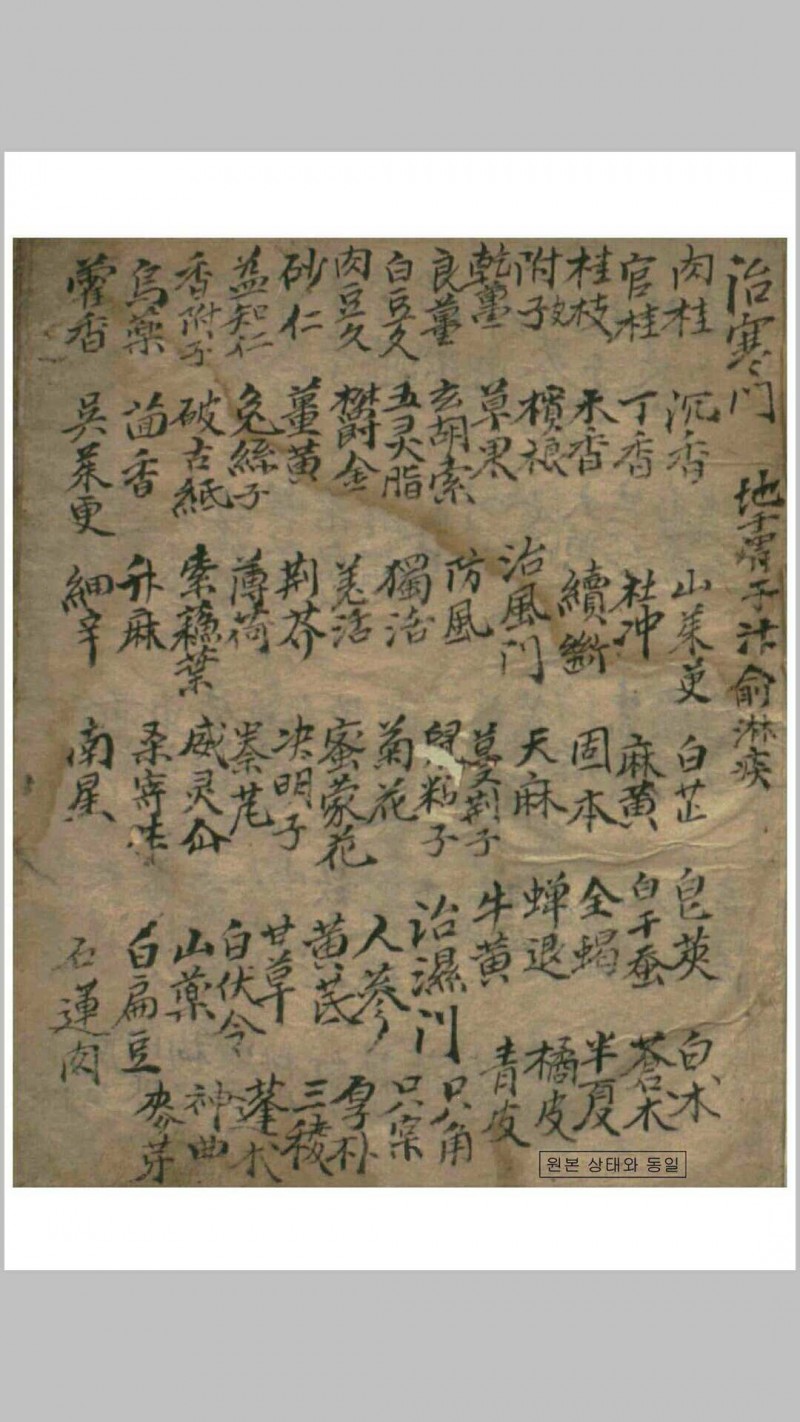 治寒門
地膚子 淋疾
肉桂
官桂
桂枝
附子
乾薑
良薑
白豆久
肉豆久
砂仁
益知仁
香附子
烏藥
藿香
沉香
丁香
木香
檳榔
草果
玄胡索
五灵脂
欝金
薑黄
兔絲子
破古紙
茴香
吳茱更
山茱更
杜冲
續斷
治風門
防風
獨活
羌活
荊芥
薄荷
索蘓葉
升麻
細辛
白芷
麻黄
固本
天麻
蔓荆子
鼠粘子
菊花
蜜蒙花
决明子
秦艽
威灵仙
桑寄生
南星
皀莢
白干蚕
全蝎
蝉退
牛黄
治濕門
人蔘
黄芪
甘草
白伏令
山藥
白扁豆
石蓮肉
白朮
蒼朮
半夏
橘皮
青皮
只角
只宲
厚朴
三稜
蓬朮
神曲
麥芽
원본 상태와 동일